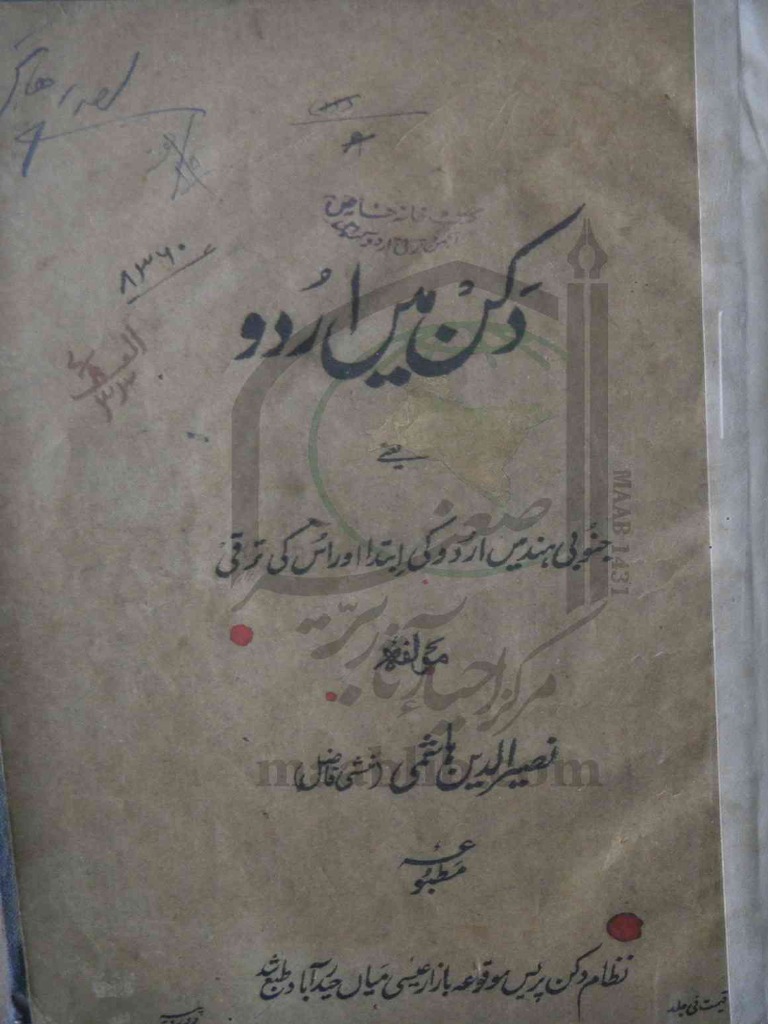 ۸۳۶۰
کتب خانہ خاص
انجمن ترقی اردو
دَکَن میں اُردو
یعنے
جنوبی ہند میں اردو کی ابتدا اور اس کی ترقی
مؤلفہ
نصیر الدین ہاشمی (منشی فاضل)
مطبوعہ
نظام دکن پریس موقوعہ بازار عیسی میاں حیدرآباد طبع شد
قیمت فی جلد
MAAB 1431
مرکز احیاء آثار برصغیر
maablib.com